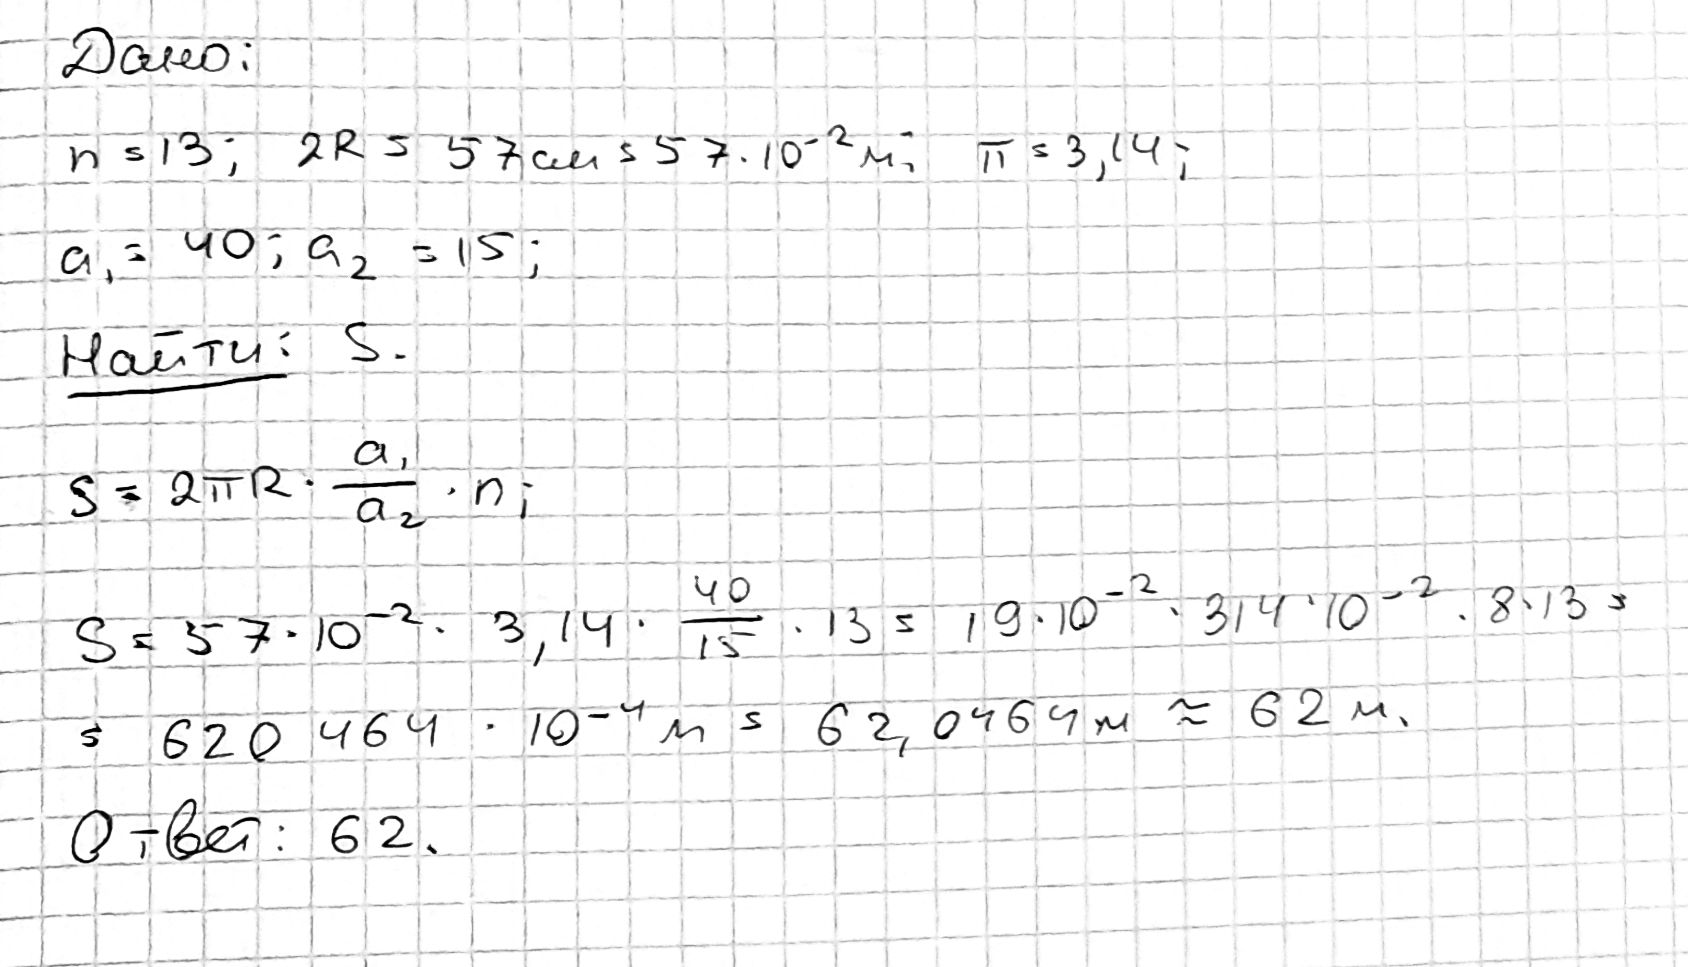 Дано:
n = 13; 2R = 57 см = 57 · 10⁻² м; π = 3,14;
a₁ = 40; a₂ = 15;
Найти: S.
S = 2πR · a₁/a₂ · n;
S = 57 · 10⁻² · 3,14 · 40/15 · 13 = 19 · 10⁻² · 314 · 10⁻² · 8 · 13 =
= 620 464 · 10⁻⁴ м = 62,0464 м ≈ 62 м.
Ответ: 62.